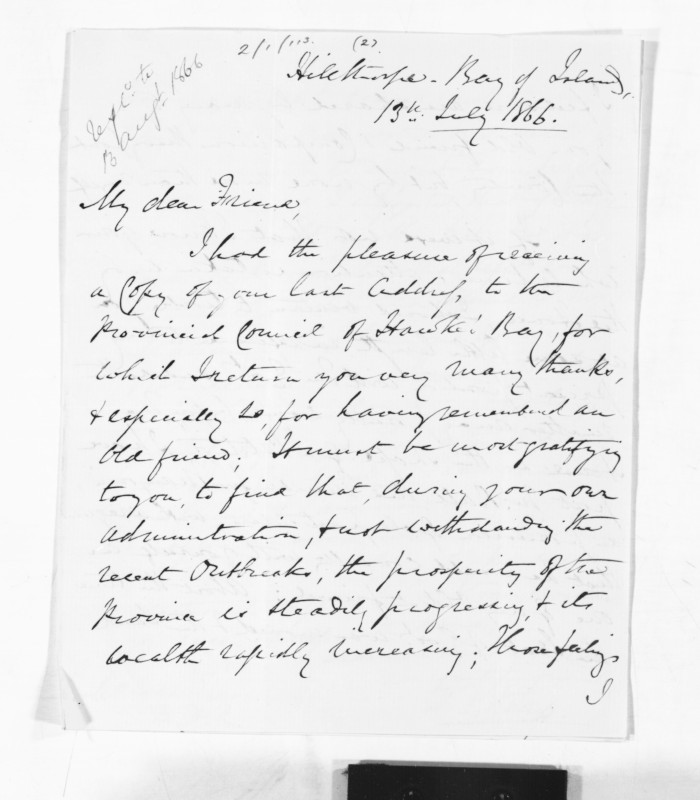 2/1/113. (2)
Repd. to
13 Augt 1866
Hilsthorpe - Bay of Islands,
13th July 1866.
My dear Friend,
I had the pleasure of receiving
a Copy of your last Address, to the
Provincial Council of Hawke's Bay, for
which I return you very many thanks,
& especially so, for having remembered an
old friend; It must be most gratifying
to you, to find that, during your own
administration, & notwithstanding the
recent Outbreaks, the prosperity of the
Province is steadily progressing, & its
wealth rapidly increasing; Those feelings
I